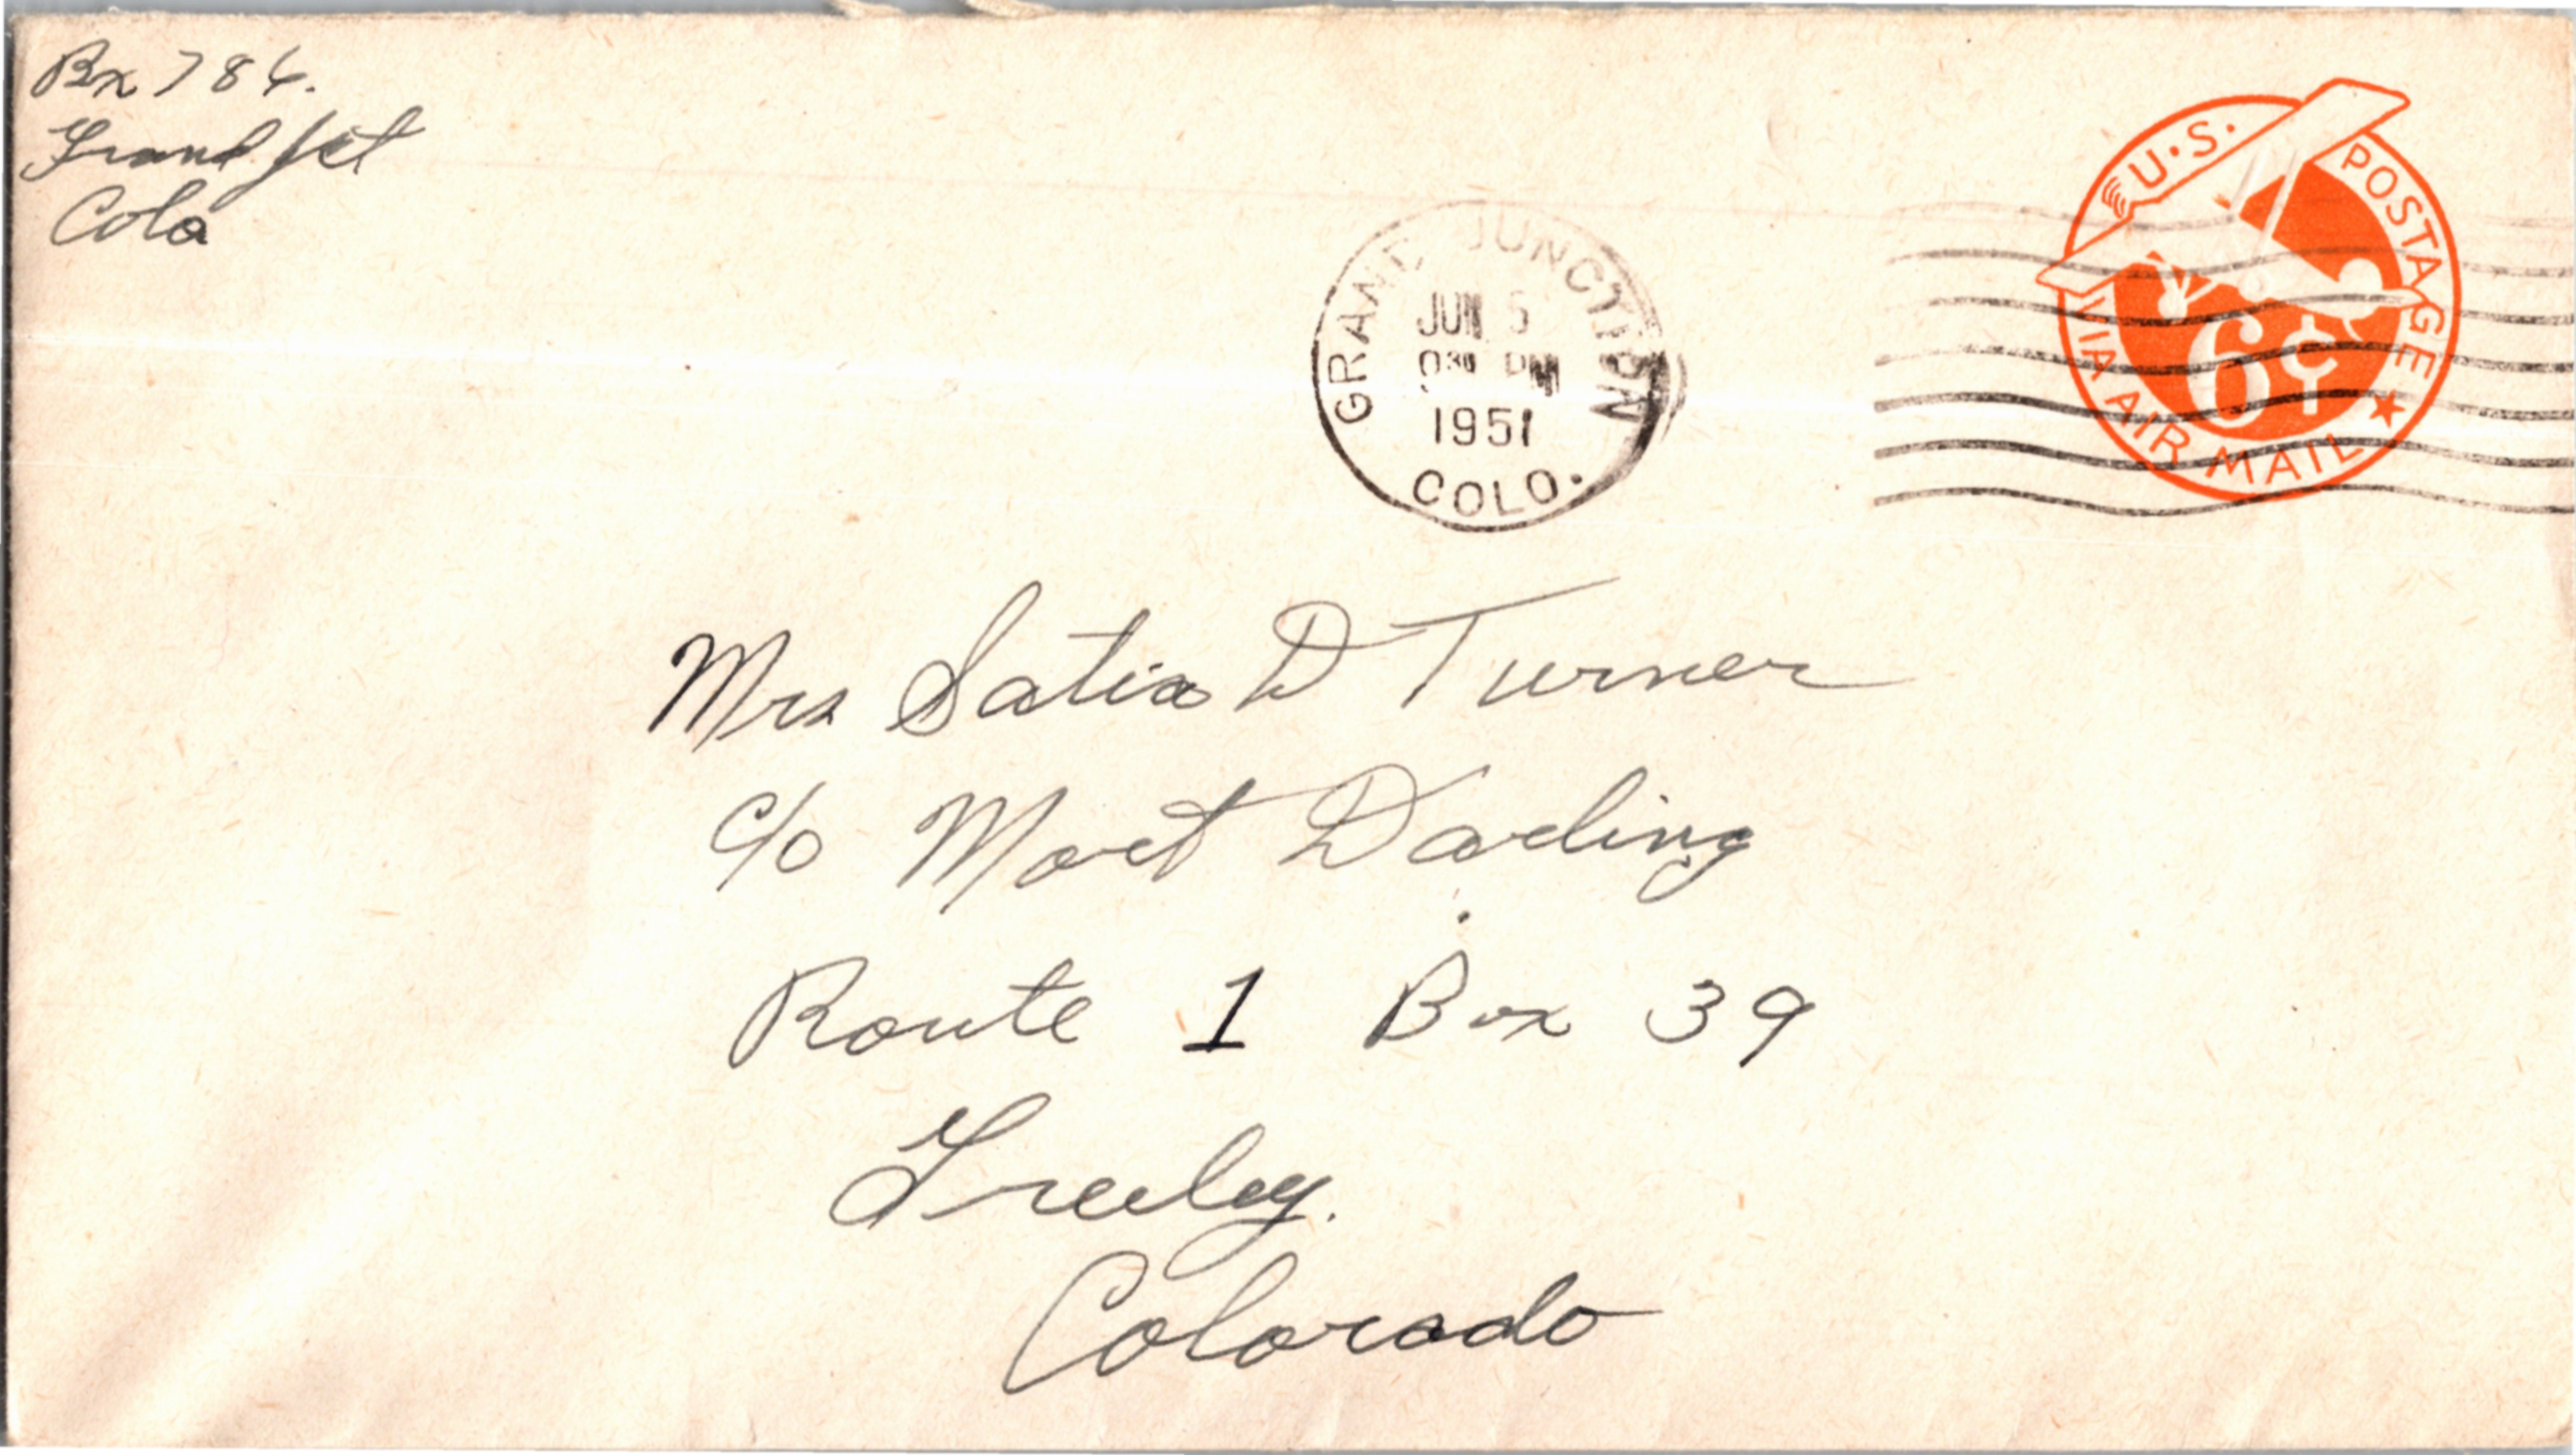 Bx 786.
Grand Jct
Colo
GRAND JUNCTION
JUN 5
PM
1951
COLO.
U.S. POSTAGE
6¢
VIA AIR MAIL
Mrs Satia D Turner
c/o Mort Darling
Route 1 Box 39
Greeley.
Colorado